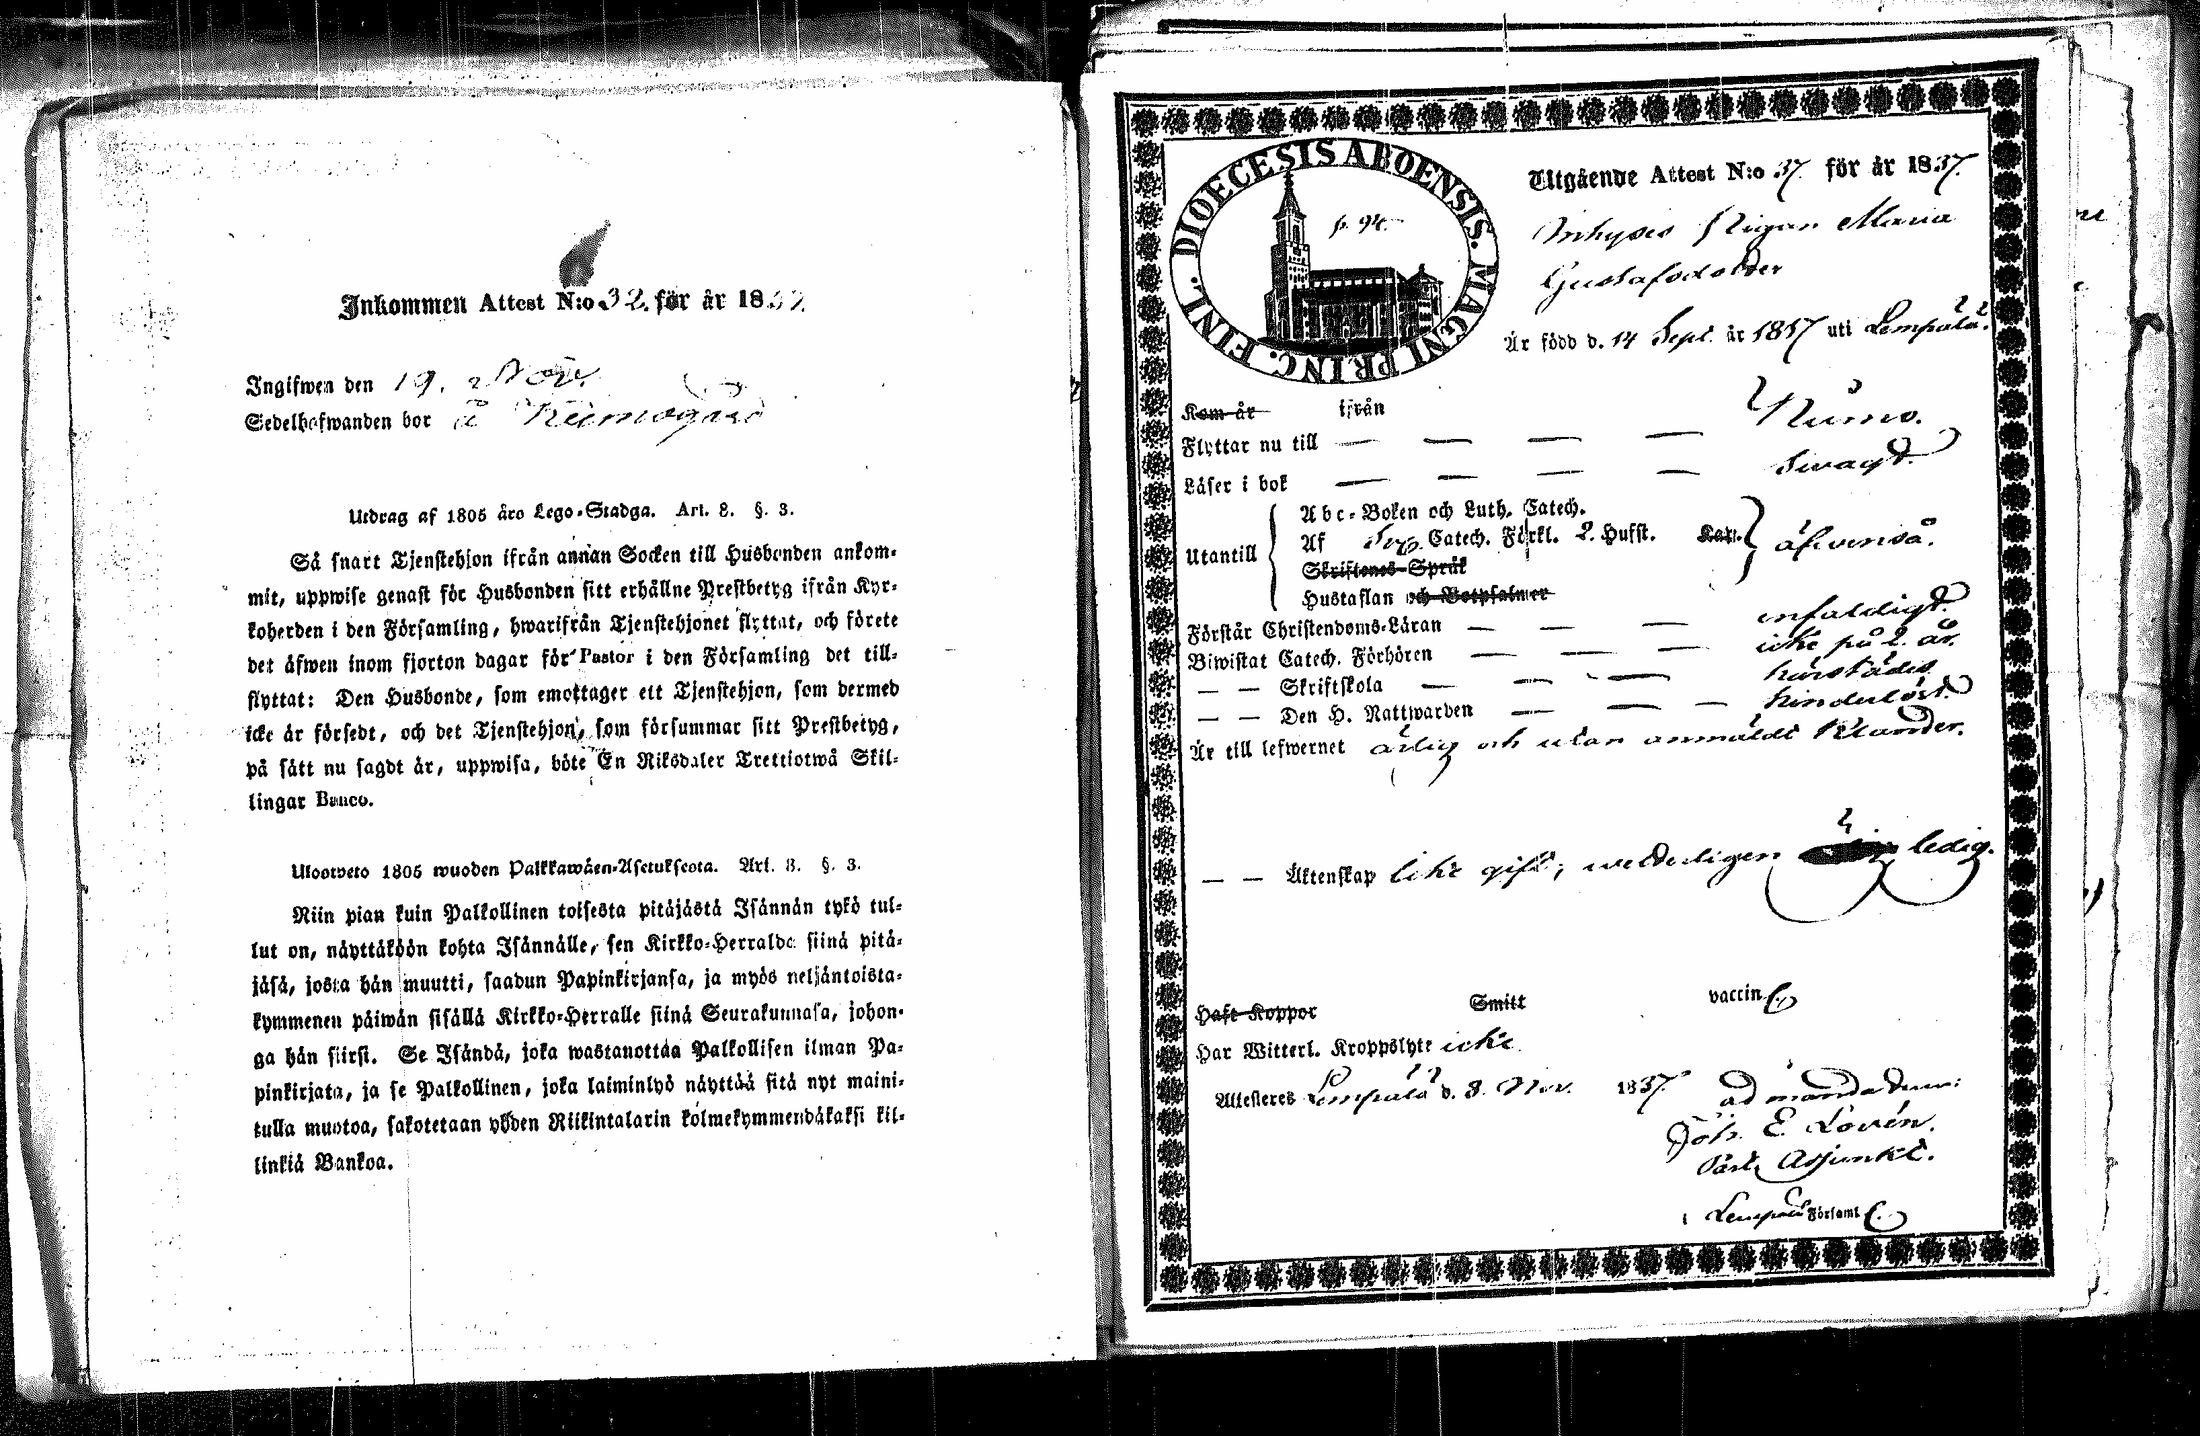 Inkommen Attest N:o 32. för år 1837.
Ingifwen den 19. Nov.
Sedelhafwanden bor å
Utdrag af 1805 års Lego-Stadga. Art. 8. §. 3.
Så snart Tjenstehjon ifrån annan Socken till Husbonden ankom-
mit, uppwise genast för Husbonden sitt erhållne Prestbetyg ifrån Kyr-
koherden i den Församling, hwarifrån Tjenstehjonet flyttat, och förete
det äfwen inom fjorton dagar för Pastor i den Församling det till-
flyttat: Den Husbonde, som emottager ett Tjenstehjon, som dermed
icke är försedt, och det Tjenstehjon, som försummar sitt Prestbetyg,
på sätt nu sagdt är, uppwisa, böte En Riksdaler Trettiotwå Skil-
lingar Banco.
Ulosweto 1805 wuoden Palkkawäen-Asetuksesta. Art. 8. §. 3.
Niin pian kuin Palkollinen toisesta pitäjästä Isännän tykö tul-
lut on, näyttäköön kohta Isännälle, sen Kirkko-Herralda siinä pitä-
jäsä, josta hän muutti, saadun Papinkirjansa, ja myös neljäntoista-
kymmenen päiwän sisällä Kirkko-Herralle siinä Seurakunnasa, johon-
ga hän siirsi. Se Isändä, joka wastanottaa Palkollisen ilman Pa-
pinkirjata, ja se Palkollinen, joka laiminlyö näyttää sitä nyt maini-
tulla muotoa, sakotetaan yhden Riikintalarin kolmekymmendäkaksi kil-
linkiä Bankoa.
DIOECESIS ABOENSIS. MAGNI PRINC. FINL.
p. 94.
Utgående Attest N:o 37. för år 1837.
Inhyses Pigan Maria
Gustafsdotter
Är född d. 14 Sept. år 1817 uti Lempälä.
Kom år ifrån
Flyttar nu till — — — — Kumo.
Läser i bok — — — — Swagt.
Utantill
Abc-Boken och Luth. Catech.
Af Catech. Förkl. 2. Hufst. Kap.
Skriftenes-Språk
Hustaflan och Botpsalmer
äfwenså.
Förstår Christendoms-Läran — — — enfaldigt.
Biwistat Catech. Förhören — — — icke på 2. år.
— — Skriftskola — — — härstädes
— — Den H. Nattwarden — — — hinderlöst.
Är till lefwernet ärlig och utan anmäldt klander.
— — Äktenskap icke gift; wederligen ledig.
Haft Koppor Smitt vaccin.
Har Witterl. Kroppslyte icke.
Attesteres Lempälä d. 8. Nov. 1837.
ad mandatum:
Joh. E. Lovén.
Past. Adjunkt.
i Lempälä Församl.